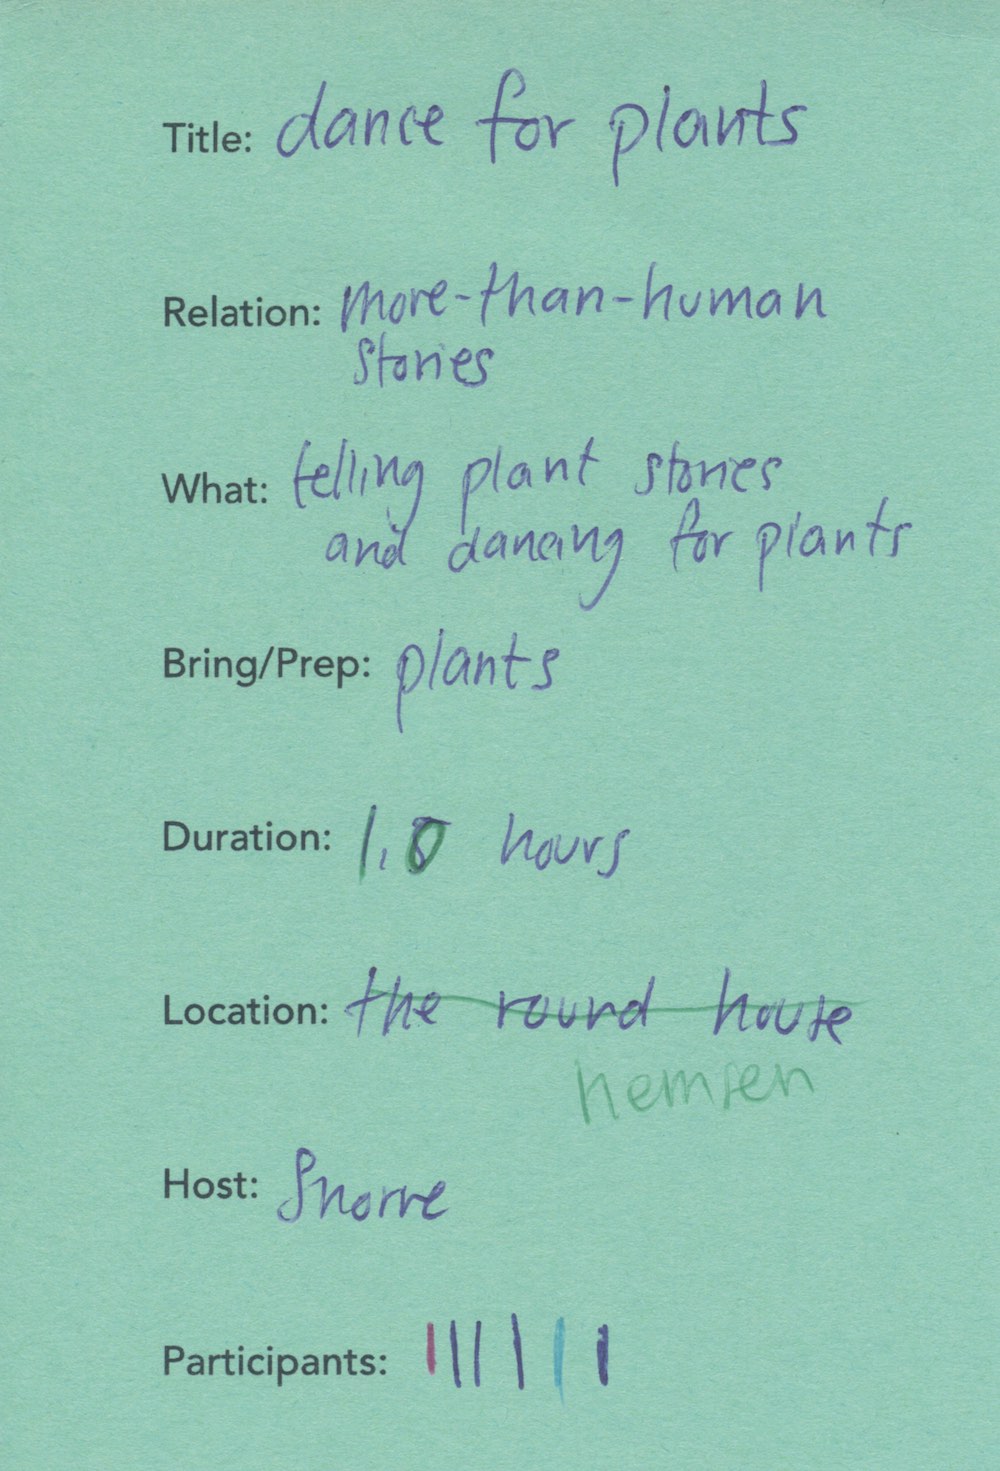 Title: dance for plants
Relation: more-than-human
stories
What: telling plant stories
and dancing for plants
Bring/Prep: plants
Duration: 1,0 hours
Location: the round house
hemsen
Host: Snorre
Participants: | | | | | |